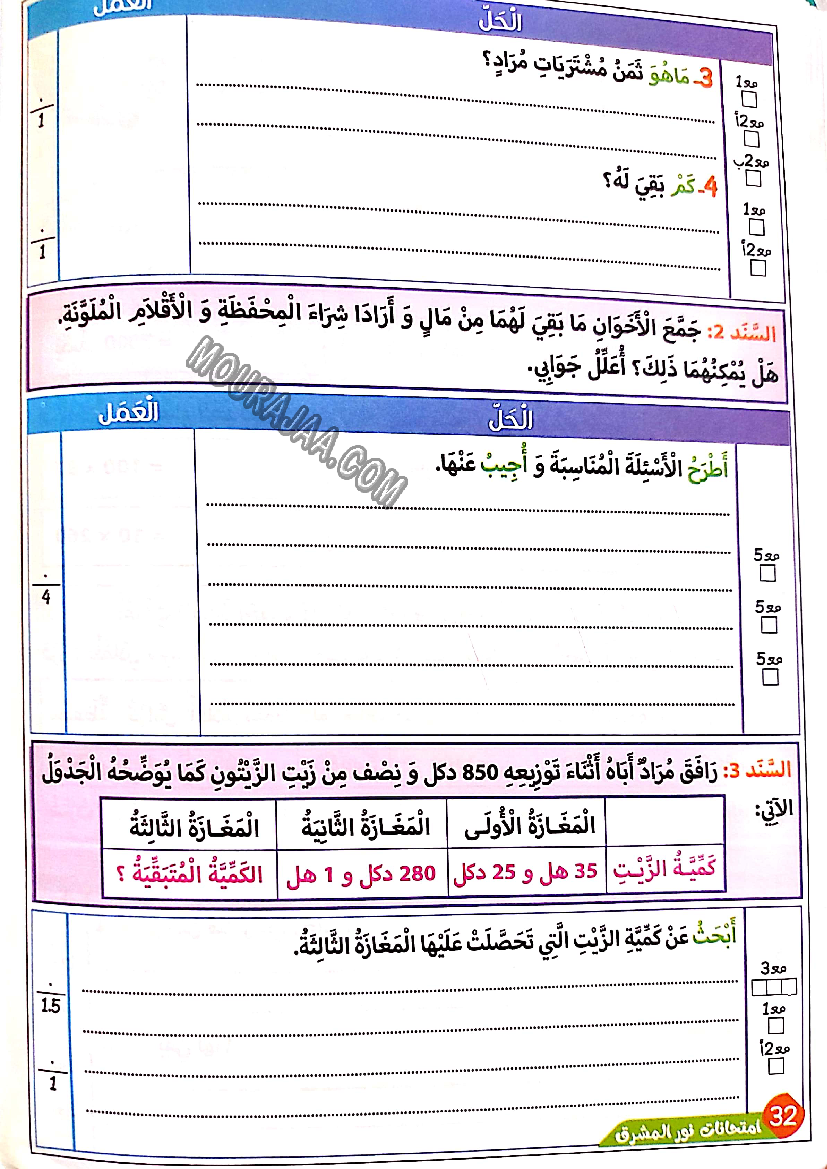 الْحَلّ
الْعَمَل
3ـ مَاهُوَ ثَمَنُ مُشْتَرَيَاتِ مُرَادٍ؟
مع1
مع2أ
مع2ب
1
4ـ كَمْ بَقِيَ لَهُ؟
مع1
مع2أ
1
السَّنَد 2: جَمَّعَ الْأَخَوَانِ مَا بَقِيَ لَهُمَا مِنْ مَالٍ وَ أَرَادَا شِرَاءَ الْمِحْفَظَةِ وَ الْأَقْلَامِ الْمُلَوَّنَةِ.
هَلْ يُمْكِنُهُمَا ذَلِكَ؟ أُعَلِّلُ جَوَابِي.
MOURAJAA.COM
الْحَلّ
الْعَمَل
أَطْرَحُ الْأَسْئِلَةَ الْمُنَاسِبَةَ وَ أُجِيبُ عَنْهَا.
مع5
مع5
مع5
4
السَّنَد 3: رَافَقَ مُرَادٌ أَبَاهُ أَثْنَاءَ تَوْزِيعِهِ 850 دكل وَ نِصْف مِنْ زَيْتِ الزَّيْتُونِ كَمَا يُوَضِّحُهُ الْجَدْوَلُ
الآتِي:
الْمَغَازَةُ الْأُولَى
الْمَغَازَةُ الثَّانِيَةُ
الْمَغَازَةُ الثَّالِثَةُ
كَمِّيَّةُ الزَّيْتِ
35 هل و 25 دكل
280 دكل و 1 هل
الكَمِّيَّةُ الْمُتَبَقِّيَةُ ؟
أَبْحَثُ عَنْ كَمِّيَّةِ الزَّيْتِ الَّتِي تَحَصَّلَتْ عَلَيْهَا الْمَغَازَةُ الثَّالِثَةُ.
مع3
مع1
مع2أ
1.5
1
32
امتحانات نور المشرق